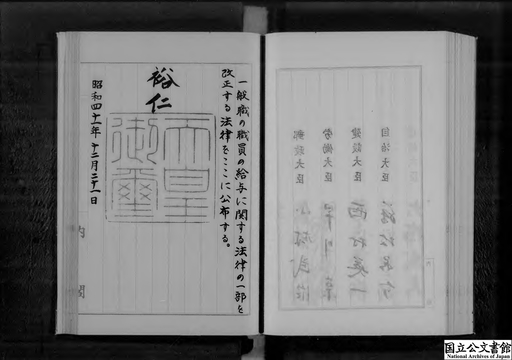 一般職の職員の給与に関する法律の一部を
改正する法律をここに公布する。
裕仁
天皇
御璽
昭和四十一年十二月二十一日
内閣
自治大臣
建設大臣
労働大臣
郵政大臣
国立公文書館
National Archives of Japan